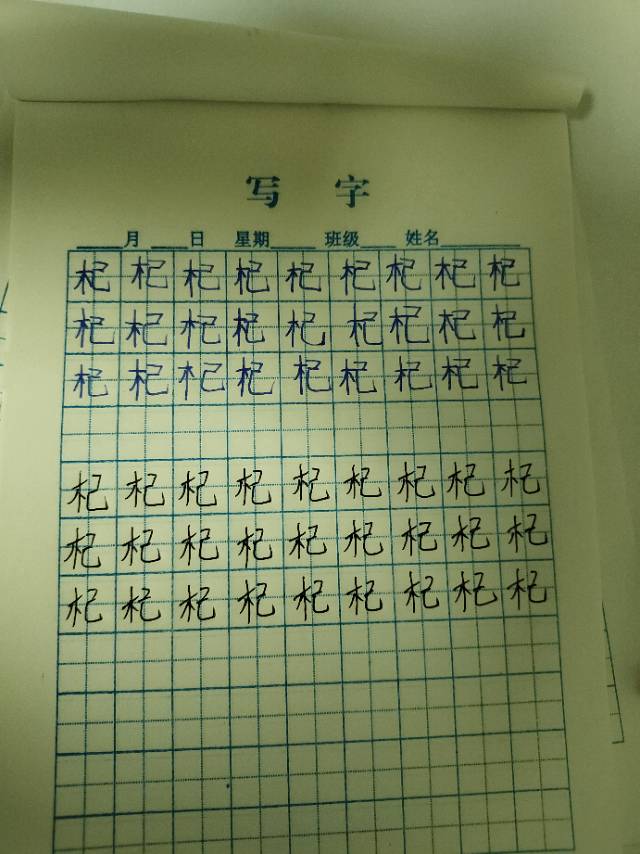 写 字
____月 ____日 星期____ 班级____ 姓名________
杞 杞 杞 杞 杞 杞 杞 杞 杞
杞 杞 杞 杞 杞 杞 杞 杞 杞
杞 杞 杞 杞 杞 杞 杞 杞 杞
杞 杞 杞 杞 杞 杞 杞 杞 杞
杞 杞 杞 杞 杞 杞 杞 杞 杞
杞 杞 杞 杞 杞 杞 杞 杞 杞